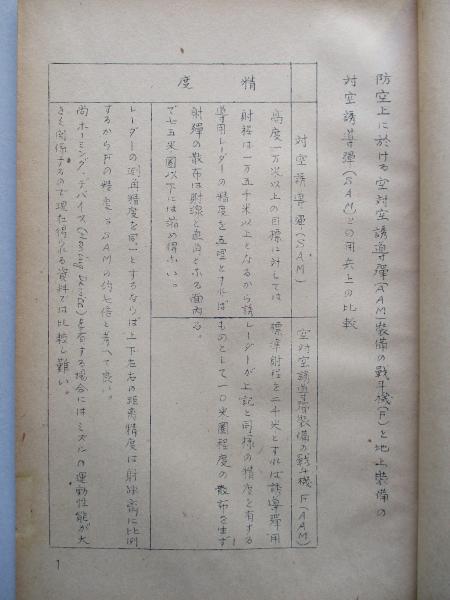 防空上に於ける空対空誘導弾(AAM)装備の戦斗機(F)と地上装備の
対空誘導弾(SAM)との用兵上の比較
対空誘導弾(SAM)
空対空誘導弾装備の戦斗機F(AAM)
精度
高度一万米以上の目標に対しては
射程は一万五千米以上となるから誘
導用レーダーの精度を五密とすれば
射弾の散布は射線と直角とホる面内
で七五米圏以下には縮め得ホい。
標準射程を二千米とすれば誘導弾用
レーダーが上記と同様の精度を有する
ものとして一〇米圏程度の散布を生ず
る。
レーダーの測角精度を同一とするならば上下左右の距離精度は射距離に比例
するからFの精度はSAMの約七倍と考へて良い。
尚ホーミング、デバイス(Homing Device)を有する場合にはミズルの運動性能が大
きく関係するので現在得られる資料では比較し難い。
1